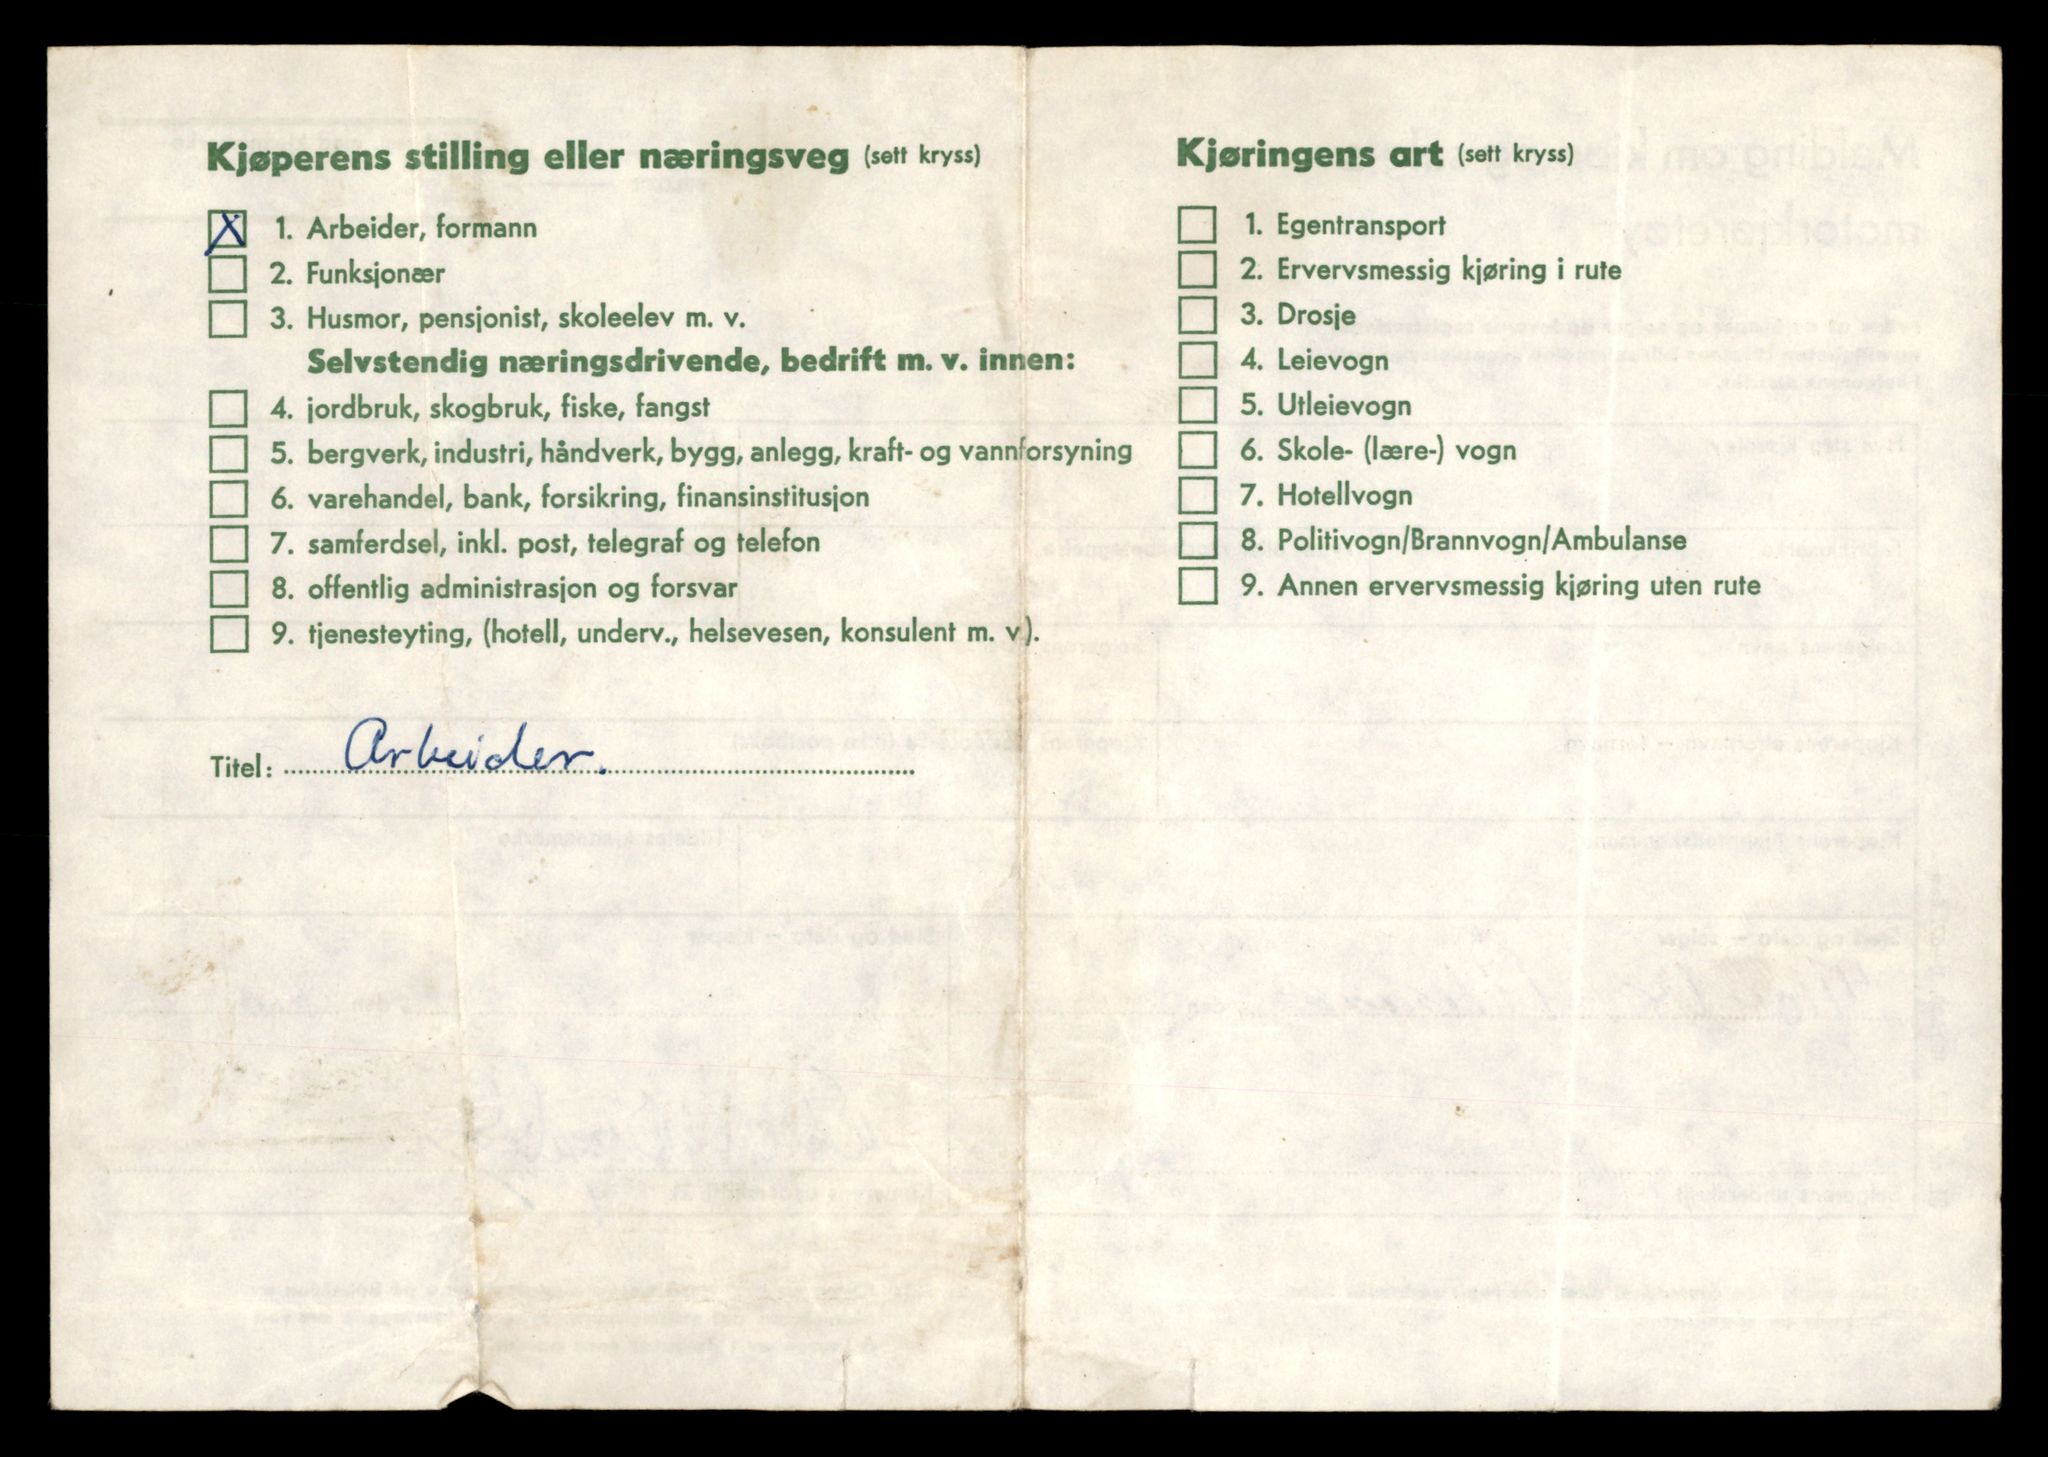 Kjøperens stilling eller næringsveg (sett kryss)
X 1. Arbeider, formann
2. Funksjonær
3. Husmor, pensjonist, skoleelev m. v.
Selvstendig næringsdrivende, bedrift m. v. innen:
4. jordbruk, skogbruk, fiske, fangst
5. bergverk, industri, håndverk, bygg, anlegg, kraft- og vannforsyning
6. varehandel, bank, forsikring, finansinstitusjon
7. samferdsel, inkl. post, telegraf og telefon
8. offentlig administrasjon og forsvar
9. tjenesteyting, (hotell, underv., helsevesen, konsulent m. v.).
Titel: Arbeider.
Kjøringens art (sett kryss)
1. Egentransport
2. Ervervsmessig kjøring i rute
3. Drosje
4. Leievogn
5. Utleievogn
6. Skole- (lære-) vogn
7. Hotellvogn
8. Politivogn/Brannvogn/Ambulanse
9. Annen ervervsmessig kjøring uten rute